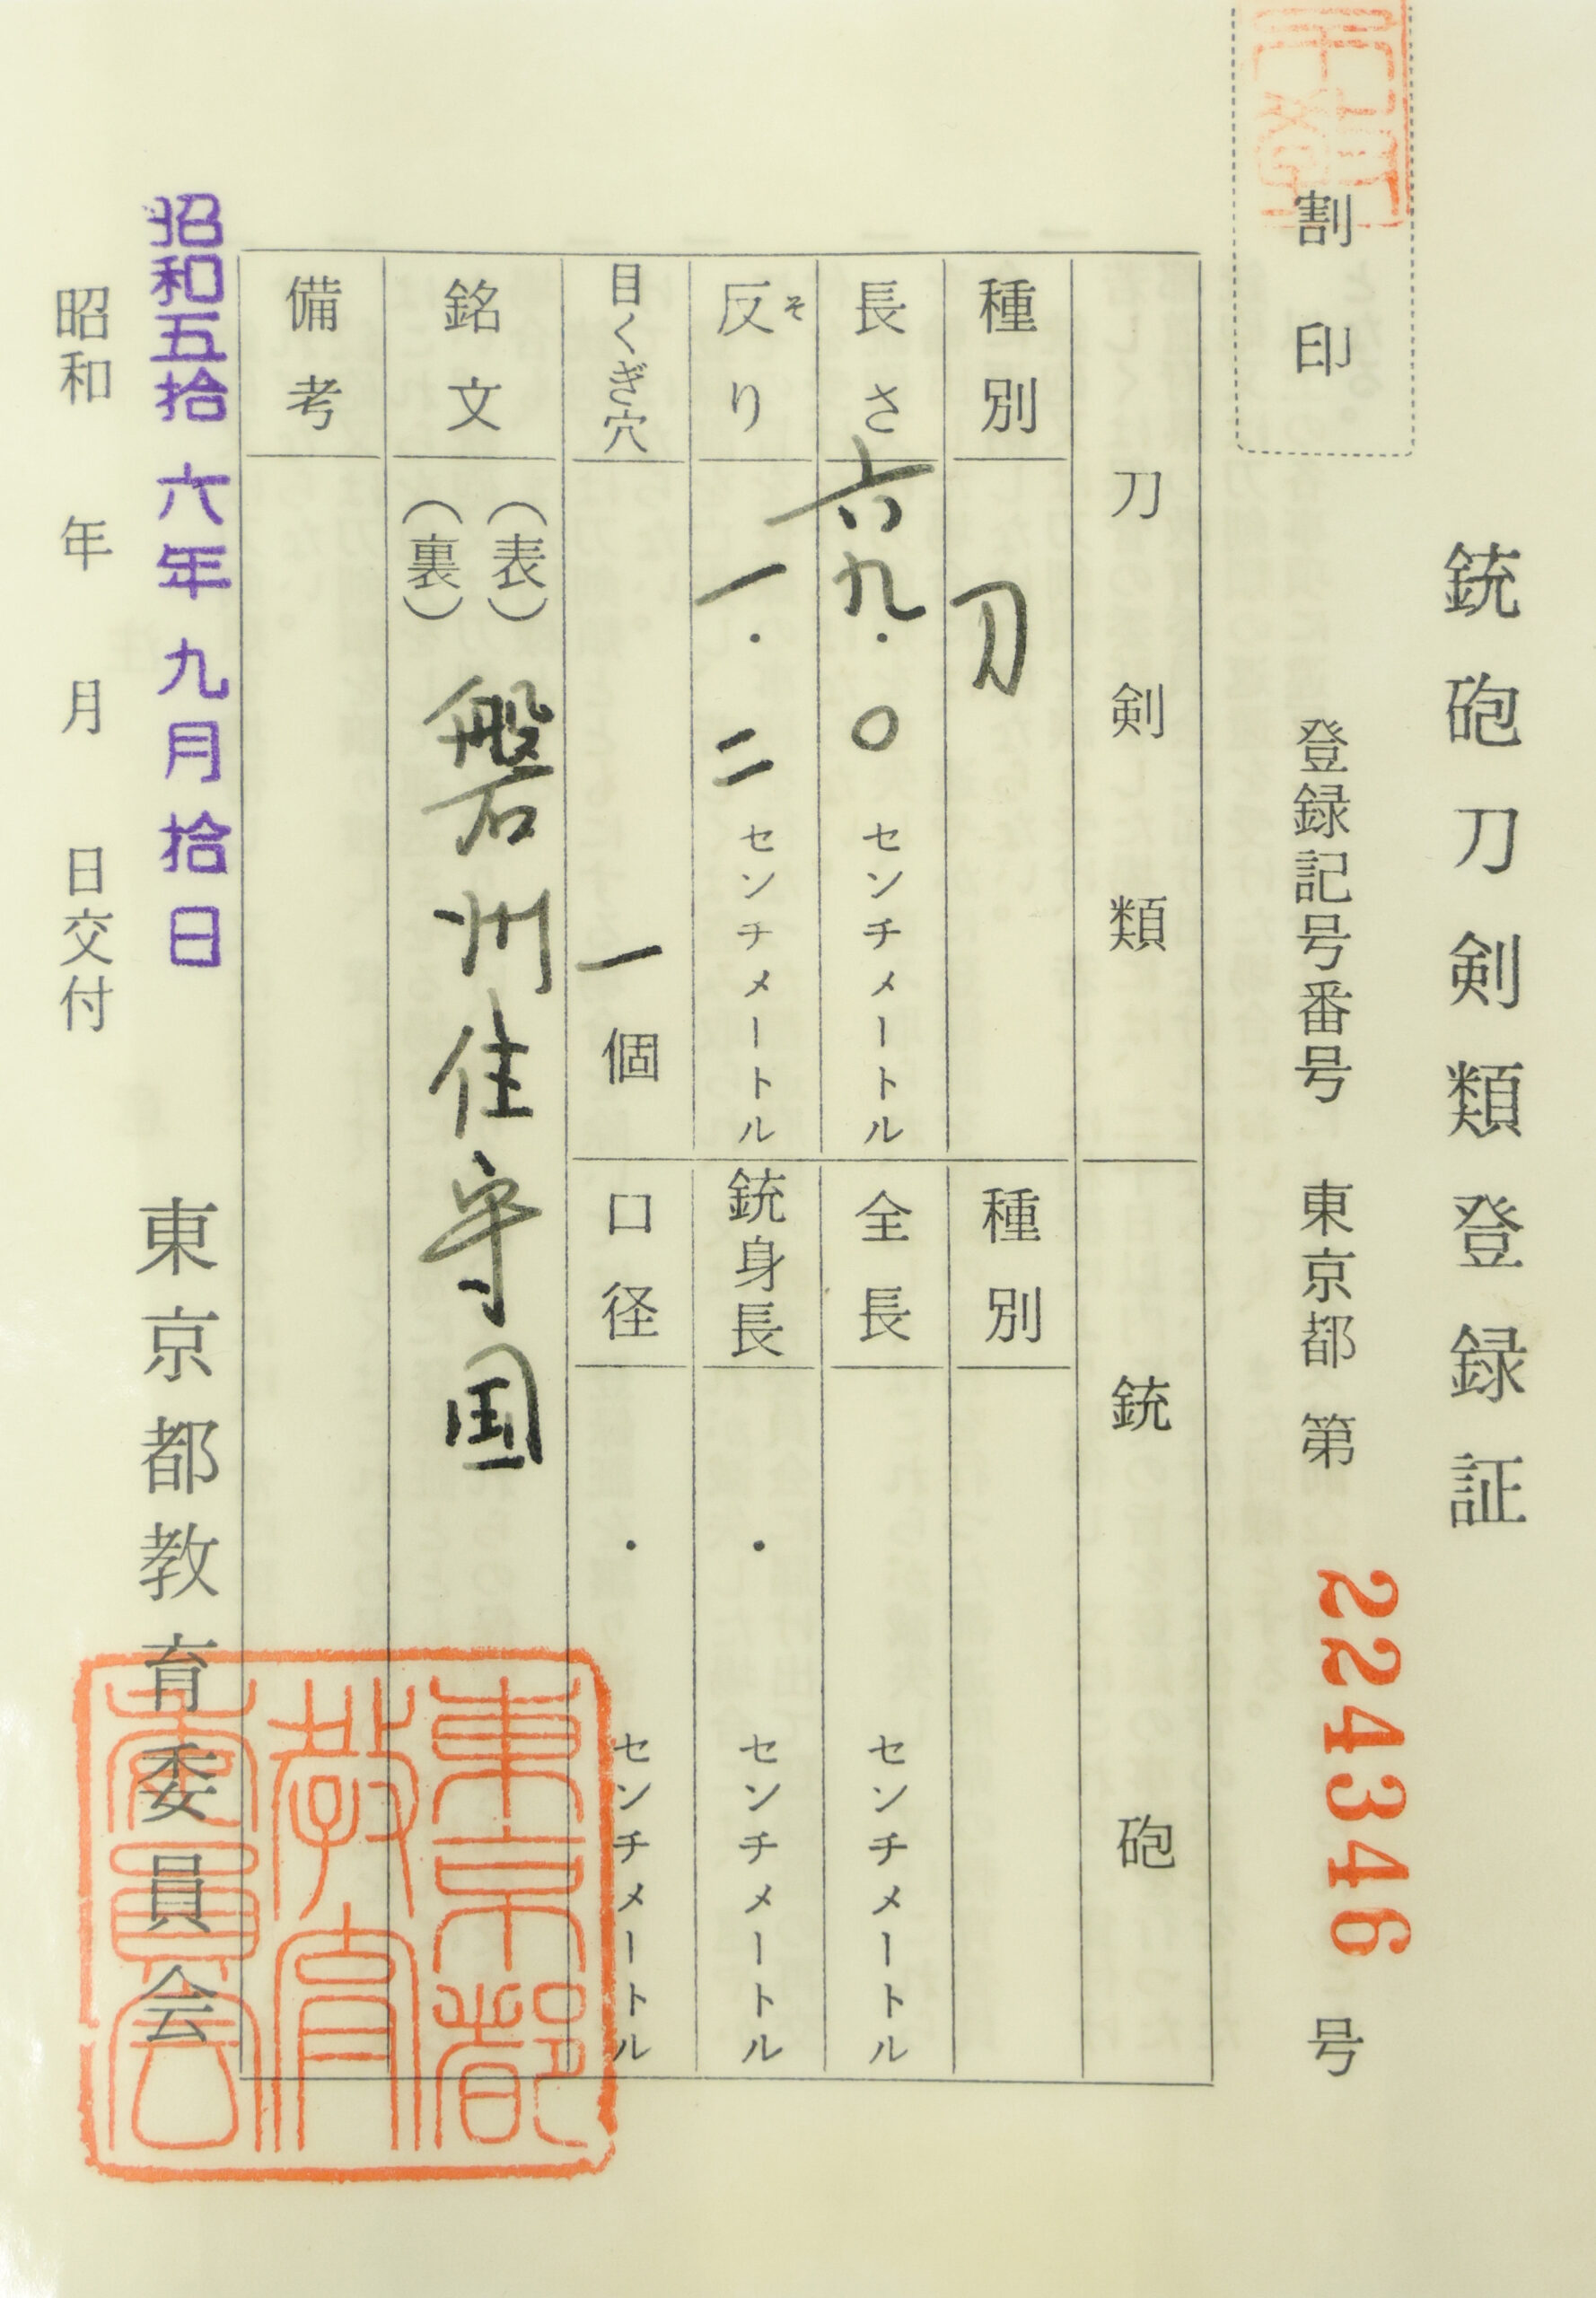 銃砲刀剣類登録証
割印
登録記号番号 東京都 第 224346 号
刀剣類
銃砲
種別 刀
種別
長さ 六九.〇 センチメートル
全長 センチメートル
反り そ 一.二 センチメートル
銃身長 . センチメートル
目くぎ穴 一個
口径 . センチメートル
銘文 (表) 磐州住守国
(裏)
備考
昭和五拾六年九月拾日
東京都教育委員会
昭和 年 月 日交付
東京都
教育
委員会